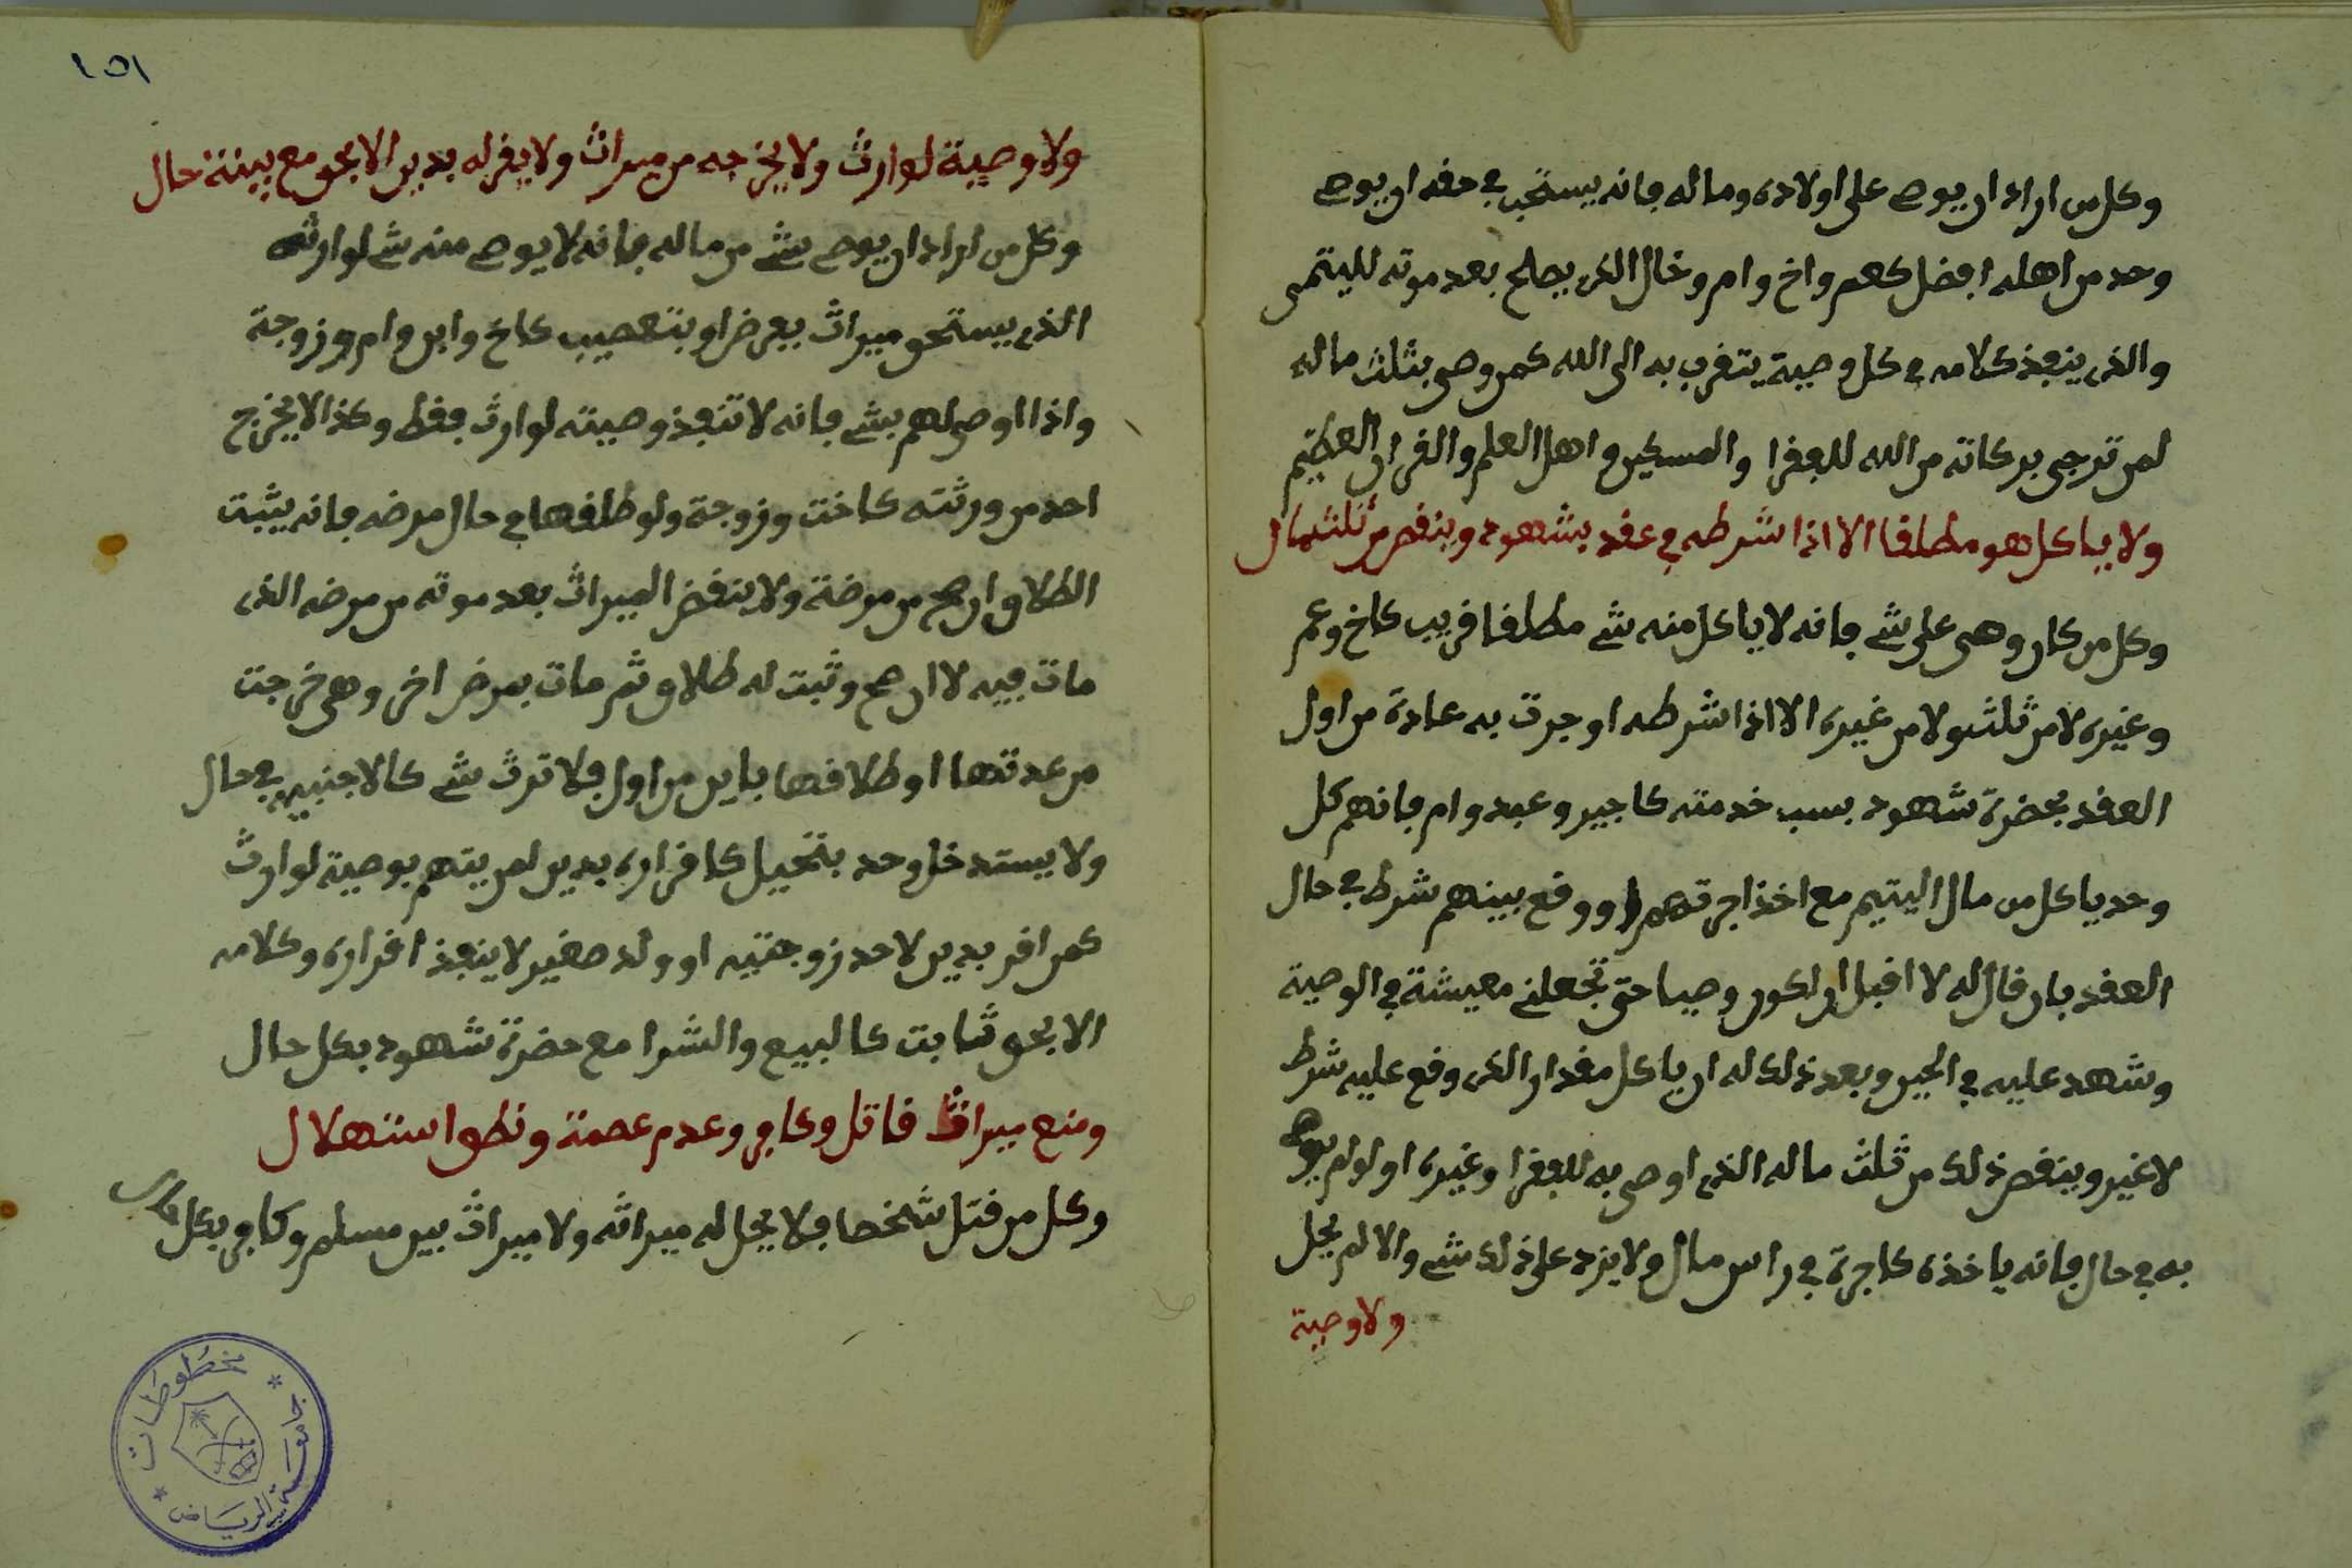 وكل من اراد ان يوصي على اولاده وماله فانه يستحب في حقه ان يوصي
وحد من اهله افضل كعم واخ وام وخال الذي يصلح بعد موته لليتمى
والذي ينفذ كلامه في كل وصية يتقرب به الى الله كمن وصى بثلث ماله
لمن ترجى بركاته من الله للفقرا والمسكين واهل العلم والقران العظيم
ولا ياكل هو مطلقا الا اذا شرطه في عقد بشهود وينقص من ثلث مال
وكل من كان وصى على شي فانه لا ياكل منه شي مطلقا قريب كاخ وعم
وغيره لا من ثلث ولا من غيره الا اذا شرطه او جرت به عادة من اول
العقد بحضرة شهود بسبب خدمته كاجير وعبد وام فانهم كل
وحد ياكل من مال اليتيم مع اخذ اجرتهم او وقع بينهم شرط في حال
العقد بان قال له لا اقبل ان اكون وصيا حتى تجعلني معيشة في الوصية
وشهد عليه في الحين وبعد ذلك له ان ياكل مقدار الذي وقع عليه شرط
لا غير وينقص ذلك من ثلث ماله الذي اوصى به للفقرا وغيره او لو لم يوص
به في حال فانه ياخذه كاجرة في راس مال ولا يزد على ذلك شي والا لم يحل
ولا وصية
١٥١
ولا وصية لوارث ولا يخرجه من ميراث ولا يقر له بدين الا بحق مع بينة حال
وكل من اراد ان يوصي بشي من ماله فانه لا يوصي منه شي لوارثه
الذي يستحق ميراث بفرض او بتعصيب كاخ وابن وام وزوجة
واذا اوصى لهم بشي فانه لا تنفذ وصيته لوارث فقط وكذا لا يخرج
احد من ورثته كاخت وزوجة ولو طلقها في حال مرضه فانه يثبت
الطلاق ان صح من مرضه ولا ينقض الميراث بعد موته من مرضه الذي
مات فيه لا ان صح وثبت له طلاق ثم مات بمرض اخر وهي خرجت
من عدتها او طلاقها باين من اول فلا ترث شي كالاجنبية في حال
ولا يستدخل وحد بتحيل كاقراره بدين لمن يتهم بوصية لوارث
كمن اقر بدين لاحد زوجتيه او ولد صغير لا ينفذ اقراره وكلامه
الا بحق ثابت كالبيع والشرا مع حضرة شهود بكل حال
ومنع ميراث قاتل وكافر وعدم عصمة ونطق استهلال
وكل من قتل شخصا فلا يحل له ميراثه ولا ميراث بين مسلم وكافر بكل
مخطوطات
جامعة الرياض